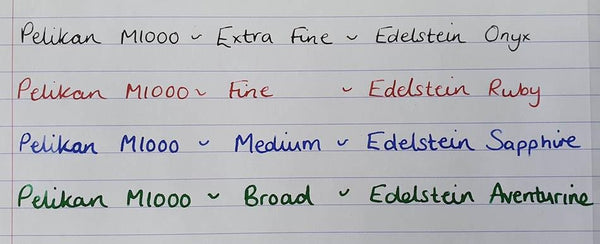 Pelikan M1000 ~ Extra Fine ~ Edelstein Onyx
Pelikan M1000 ~ Fine ~ Edelstein Ruby
Pelikan M1000 ~ Medium ~ Edelstein Sapphire
Pelikan M1000 ~ Broad ~ Edelstein Aventurine